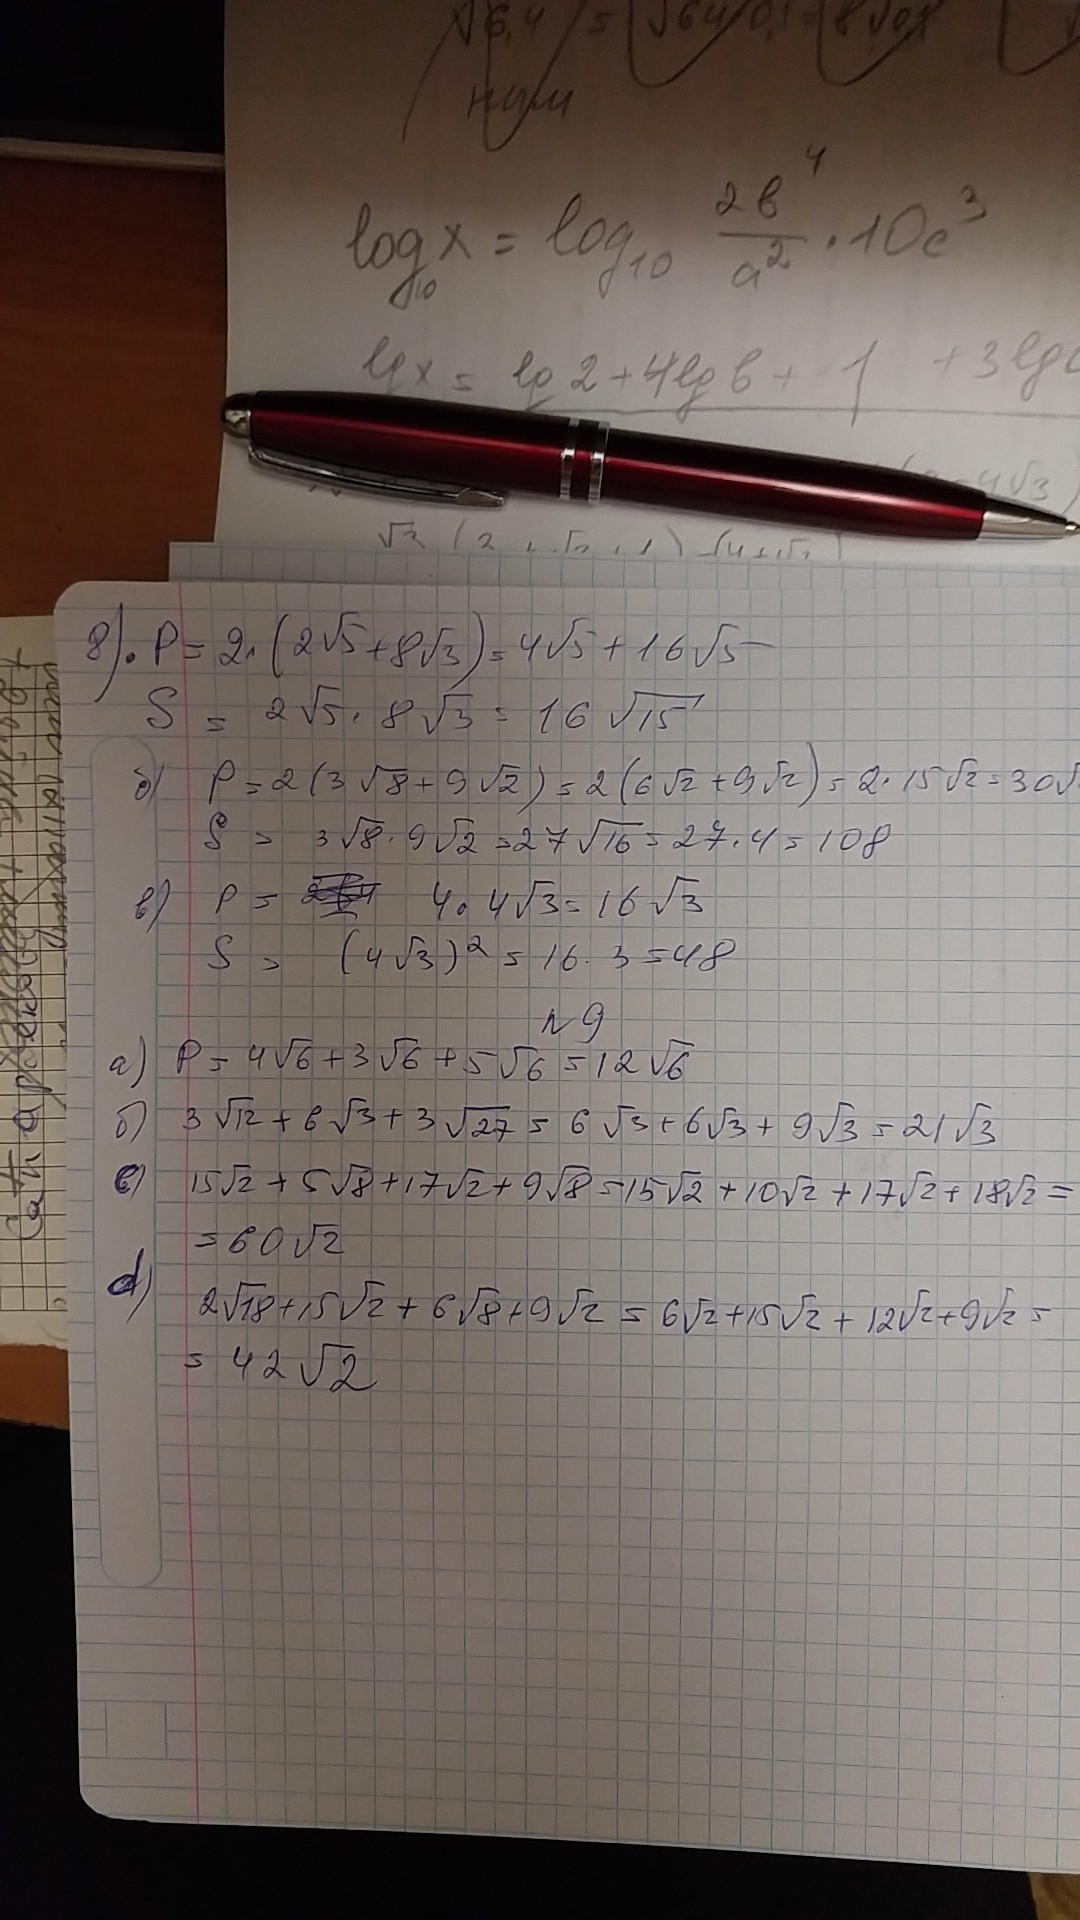 √6,4 = √64·0,1 = 8√0,1
log₁₀x = log₁₀ 2b⁴/a² · 10c³
lgx = lg2+4lgb+ 1 +3lgc
4√3)
8). P = 2·(2√5+8√3)=4√5+16√5
S = 2√5·8√3 = 16√15
б) P=2(3√8+9√2)=2(6√2+9√2)=2·15√2=30√
S = 3√8·9√2=27√16=27·4=108
в) P = 4·4√3=16√3
S = (4√3)²=16·3=48
N9
а) P=4√6+3√6+5√6=12√6
б) 3√12+6√3+3√27=6√3+6√3+9√3=21√3
в) 15√2+5√8+17√2+9√8=15√2+10√2+17√2+18√2=
=60√2
d) 2√18+15√2+6√8+9√2=6√2+15√2+12√2+9√2=
= 42√2